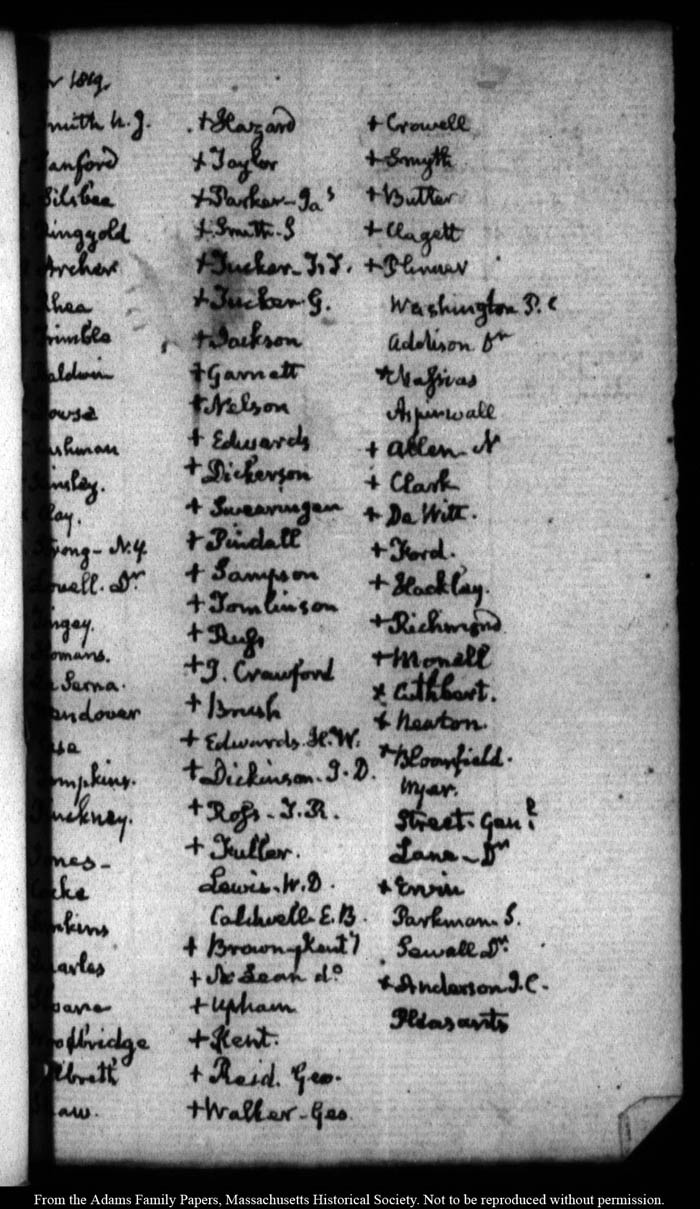 1819.
mith N.J.
anford
ilsbee
inggold
Archer
hea
rimble
aldwin
owse
ushman
insley.
lay.
trong - N.Y.
owell. Dr
ingey.
omans.
Serna.
andover
ase
ompkins.
inckney.
ones -
ocke
nkins
harles
loane
oodbridge
lbreth
aw.
+ Hazard
+ Taylor
+ Parker - Jas
+ Smith - S
+ Tucker - S. T.
+ Tucker G.
+ Jackson
+ Garnett
+ Nelson
+ Edwards
+ Dickerson
+ Swearingen
+ Pindall
+ Sampson
+ Tomlinson
+ Rugs
+ J. Crawford
+ Brush
+ Edwards. H. W.
+ Dickinson. J. D.
+ Ross - T. R.
+ Fuller.
Lewis. W. D.
Caldwell. E. B.
+ Brown (Kenty)
+ McLean do
+ Upham
+ Kent.
+ Reid. Geo.
+ Walker - Geo
+ Crowell
+ Smyth
+ Butler
+ Clagett
+ Plumer
Washington P. C
Addison Dr
+ Massias
Aspinwall
+ Allen - N
+ Clark
+ De Witt.
+ Ford.
+ Hackley.
+ Richmond
+ Monell
+ Cuthbert.
+ Newton.
+ Bloomfield.
Wyer.
Street. Genl
Lane - Dr
+ Ervin
Parkman. S.
Sewall Dr.
+ Anderson J. C.
Pleasants
From the Adams Family Papers, Massachusetts Historical Society. Not to be reproduced without permission.